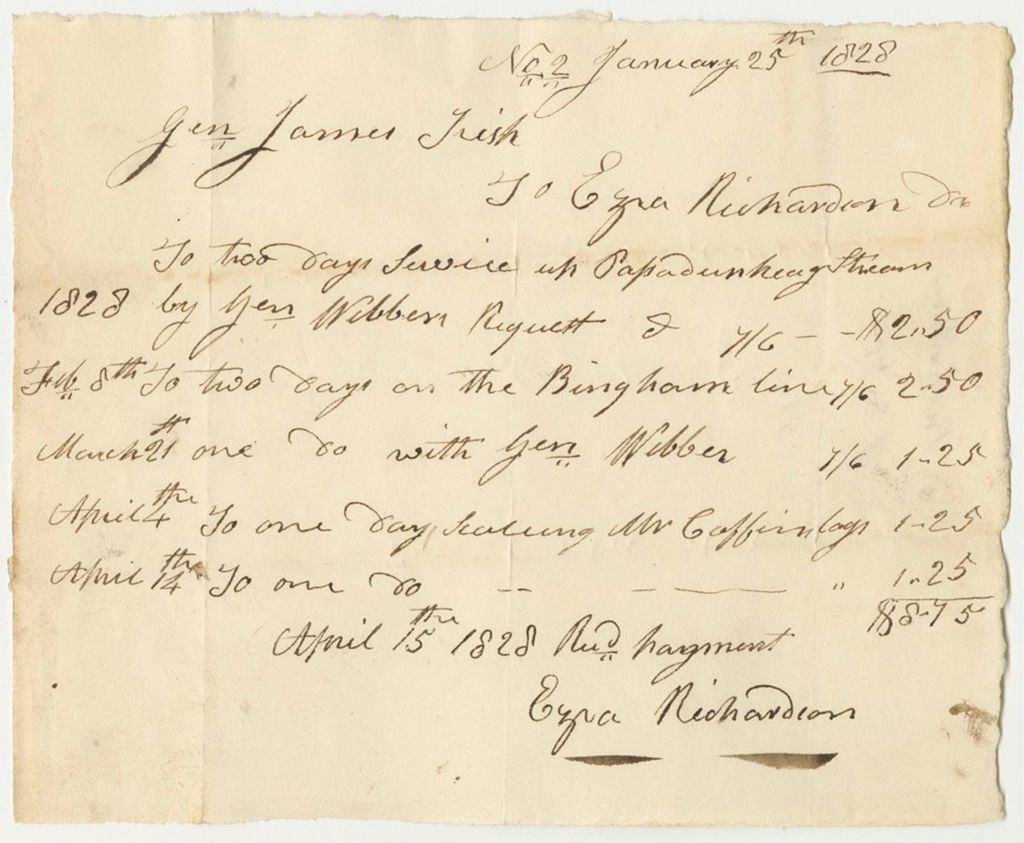 No 2 January 25th 1828
Gen James Irish
To Ezra Richardson Dr
To two days Service up Pasadunkeag Stream
1828 by Gen Webbers Request @ 7/6 - - $2.50
Feb 8th To two days on the Bingham line 7/6 2.50
March 21st one do with Gen Webber 7/6 1.25
April 4th To one day Scaleing Mr Coffin logs 1.25
April 14th To one do -- -- " 1.25
$8.75
April 15th 1828 Recd payment
Ezra Richardson